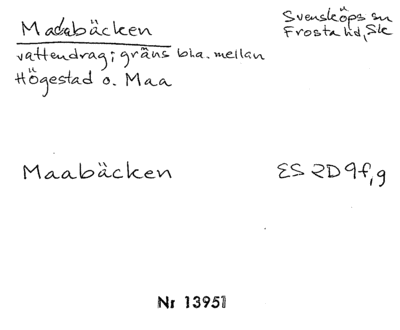 Maabäcken
Svensköps sn
Frosta hd, Sk
vattendrag; gräns bl.a. mellan
Högestad o. Maa
Maabäcken
ES 2D 9f,g
Nr 13951